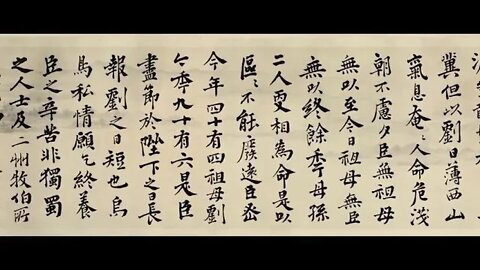 冀但以劉日薄西山
氣息奄〻人命危淺
朝不慮夕臣無祖母
無以至今日祖母無臣
無以終餘秊母孫
二人更相為命是以
區〻不能廢遠臣密
今年四十有四祖母劉
今秊九十有六是臣
盡節於陛下之日長
報劉之日短也烏
鳥私情願乞終養
臣之辛苦非獨蜀
之人士及二州牧伯所